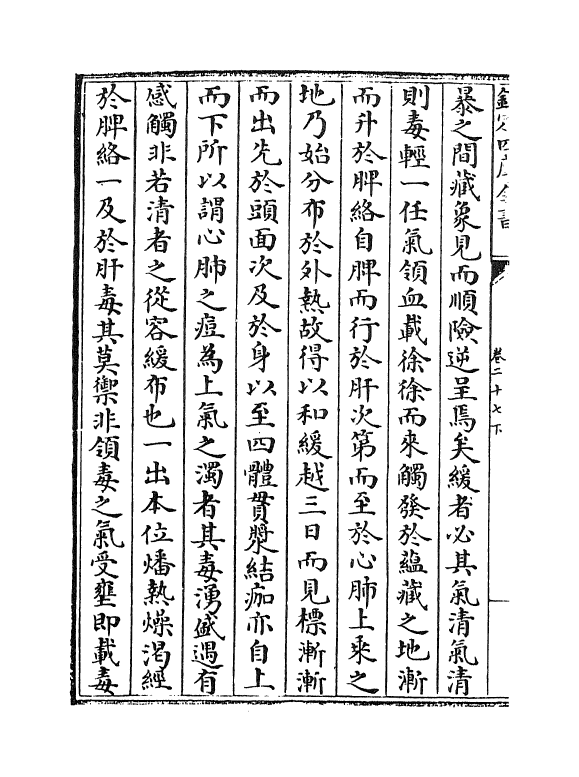 欽定四庫全書
卷二十七下
暴之間藏象見而順險逆呈焉矣緩者必其氣清氣清
則毒輕一任氣領血載徐徐而來觸發於蘊藏之地漸
而升於脾絡自脾而行於肝次第而至於心肺上乘之
地乃始分布於外熱故得以和緩越三日而見標漸漸
而出先於頭面次及於身以至四體貫漿結痂亦自上
而下所以謂心肺之痘為上氣之濁者其毒湧盛遇有
感觸非若清者之從容緩布也一出本位燔熱燥渴經
於脾絡一及於肝毒其莫禦非領毒之氣受壅即載毒